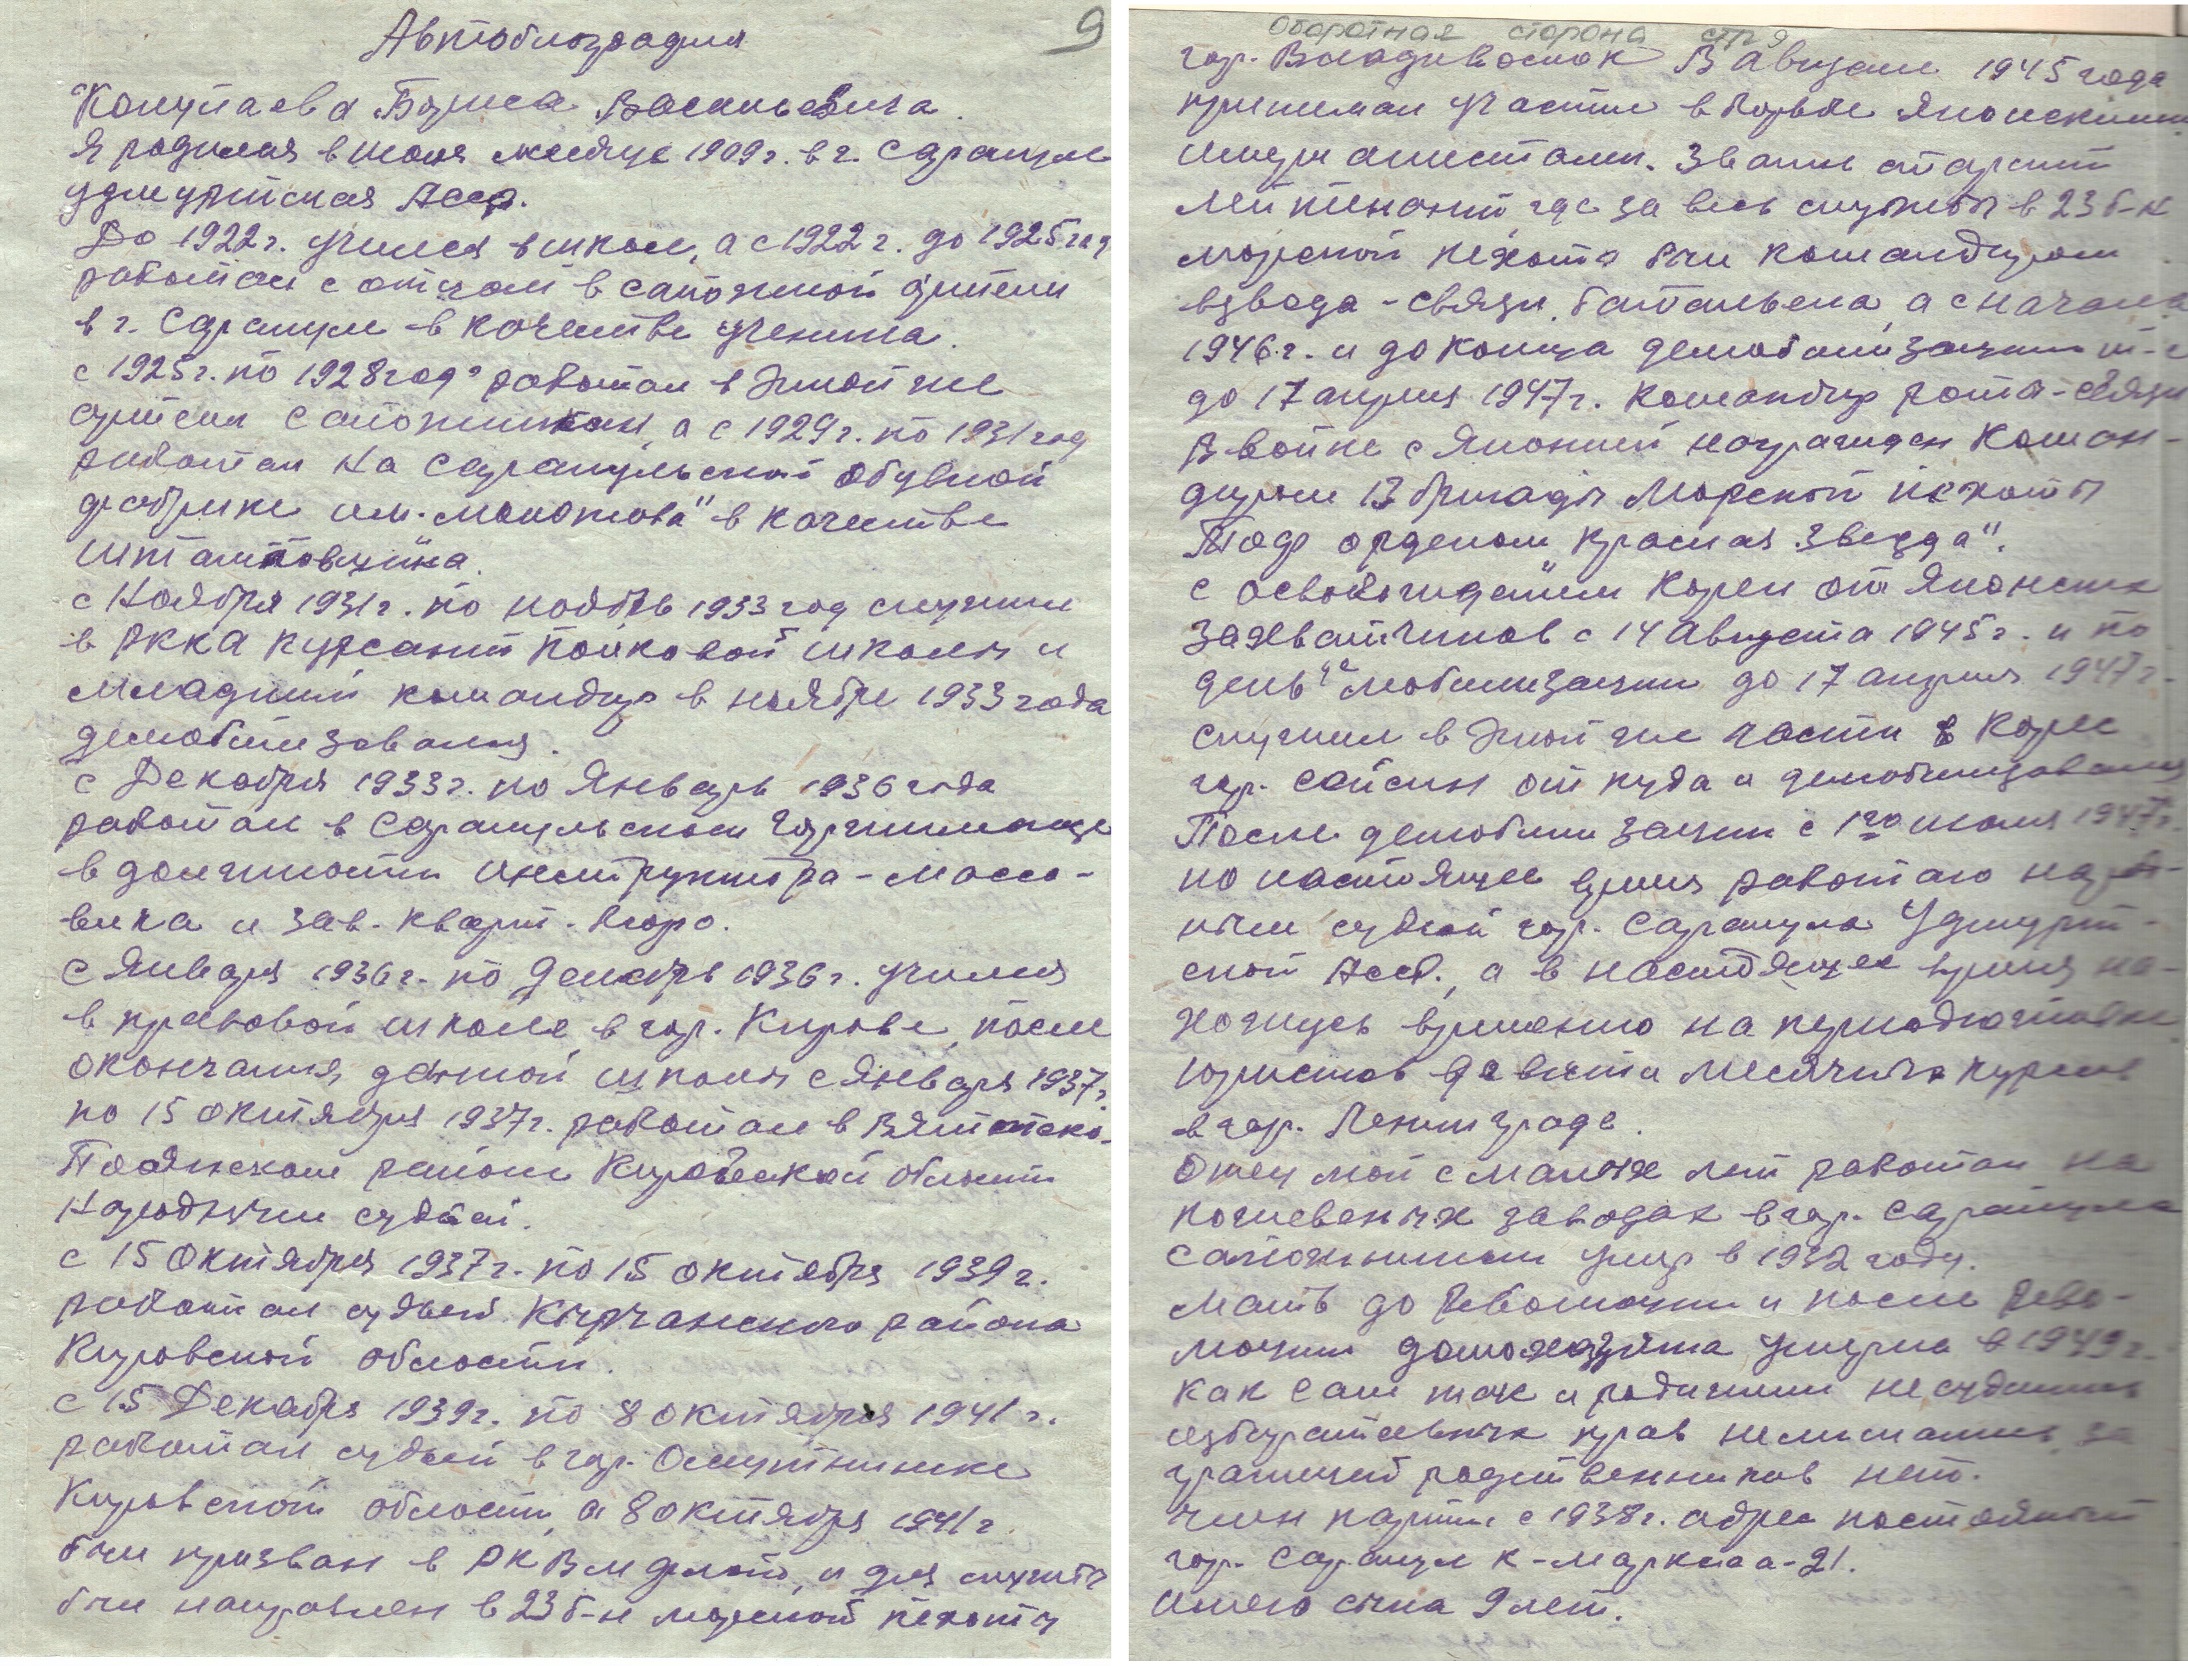 9
Автобиография
Кокулаева Бориса Васильевича.
Я родился в июля месяце 1909 г. в г. Сарапуле
Удмуртская Асср.
До 1922 г. учился в школе, а с 1922 г. до 1925 год
работал с отцом в сапожной артели
в г. Сарапуле в качестве ученика.
с 1925 г. по 1928 год работал в этой же
артели сапожником, а с 1929 г. по 1931 год
работал на Сарапульской обувной
фабрике им. Молотова" в качестве
с Ноября 1931 г. по ноябрь 1933 год служил
в РККА курсант полковой школы и
младший командир в ноябре 1933 года
демобилизовался.
с Декабря 1933 г. по Январь 1936 года
работал в Сарапульском Горжилсоюзе
в должности инструктора-массо-
вика и зав. кварт. бюро.
с Января 1936 г. по Декабрь 1936 г. учился
в правовой школе в гор. Кирове, после
окончания данной школы с Января 1937 г.
по 15 октября 1937 г. работал в Вятско-
Полянском районе Кировской области
Народным судьей.
с 15 Октября 1937 г. по 15 октября 1939 г.
работал судьей Кырчанского района
Кировской области.
с 15 Декабря 1939 г. по 8 октября 1941 г.
работал судьей в гор. Омутнинске
Кировской области, а 8 октября 1941 г
был призван в РКВМ флот, и для службы
был направлен в 23 б-н морской пехоты
оборотная сторона стр 9
гор. Владивосток В Августе 1945 года
принимал участие в борьбе Японскими
империалистами. Звание старший
лейтенант где за весь службы в 23 б-н
морской пехоты был командиром
взвода-связи батальена, а с начала
1946 г. и до конца демобилизации т-е
до 17 апреля 1947 г. командир роты-связи
В войне с Японией награжден Коман-
диром 13 бригады Морской пехоты
Тоф орденом Красная Звезда".
с освобождением Кореи от Японских
захватчиков с 14 Августа 1945 г. и по
день мобилизации до 17 апреля 1947 г.
служил в этой же части в Корее
гор. Сейсин от куда и демобилизовался
После демобилизации с 1го июля 1947 г.
по настоящее время работаю народ-
ным судьей гор. Сарапула Удмурт-
ской Асср., а в настоящее время на-
хожусь временно на переподготовке
юристов девяти месячных курсов
в гор. Ленинграде.
Отец мой с малых лет работал на
кожевеных заводах в гор. Сарапуле
сапожником умер в 1932 году.
Мать до Революции и после Рево-
люции домохозяйка умерла в 1949 г.
как сам так и родители не судились
избирательных прав нелишались, за
границей родственников нет.
член партии с 1938 г. адрес постоянный
гор. Сарапул К-Маркса-21.
Имею сына 9 лет.